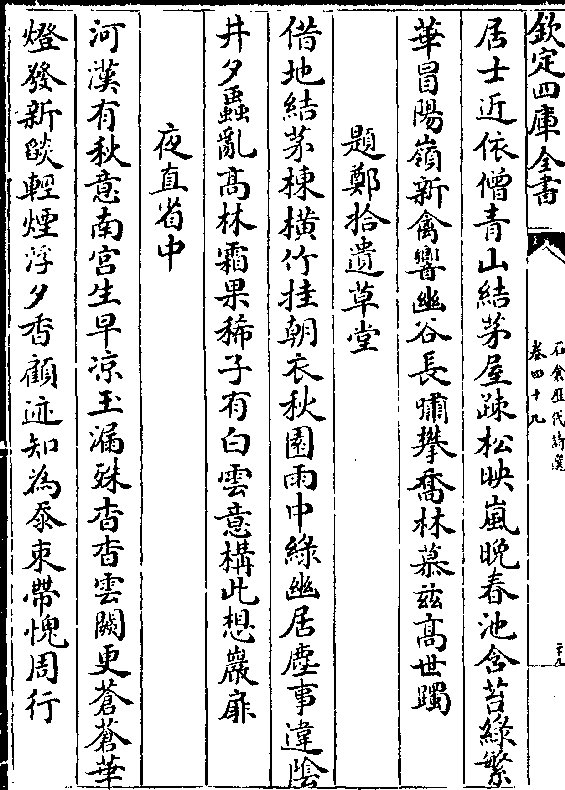 欽定四庫全書
石倉歷代詩選
卷四十九
居士近依僧青山結茅屋疎松映嵐晚春池含苔綠繁
華冒陽嶺新禽響幽谷長嘯攀喬林慕兹高世躅
題鄭拾遺草堂
借地結茅棟橫竹挂朝衣秋園雨中綠幽居塵事違陰
井夕蟲亂高林霜果稀子有白雲意構此想巖扉
夜直省中
河漢有秋意南宮生早凉玉漏殊杳杳雲闕更蒼蒼華
燈發新燄輕煙浮夕香顧迹知為忝束帶愧周行